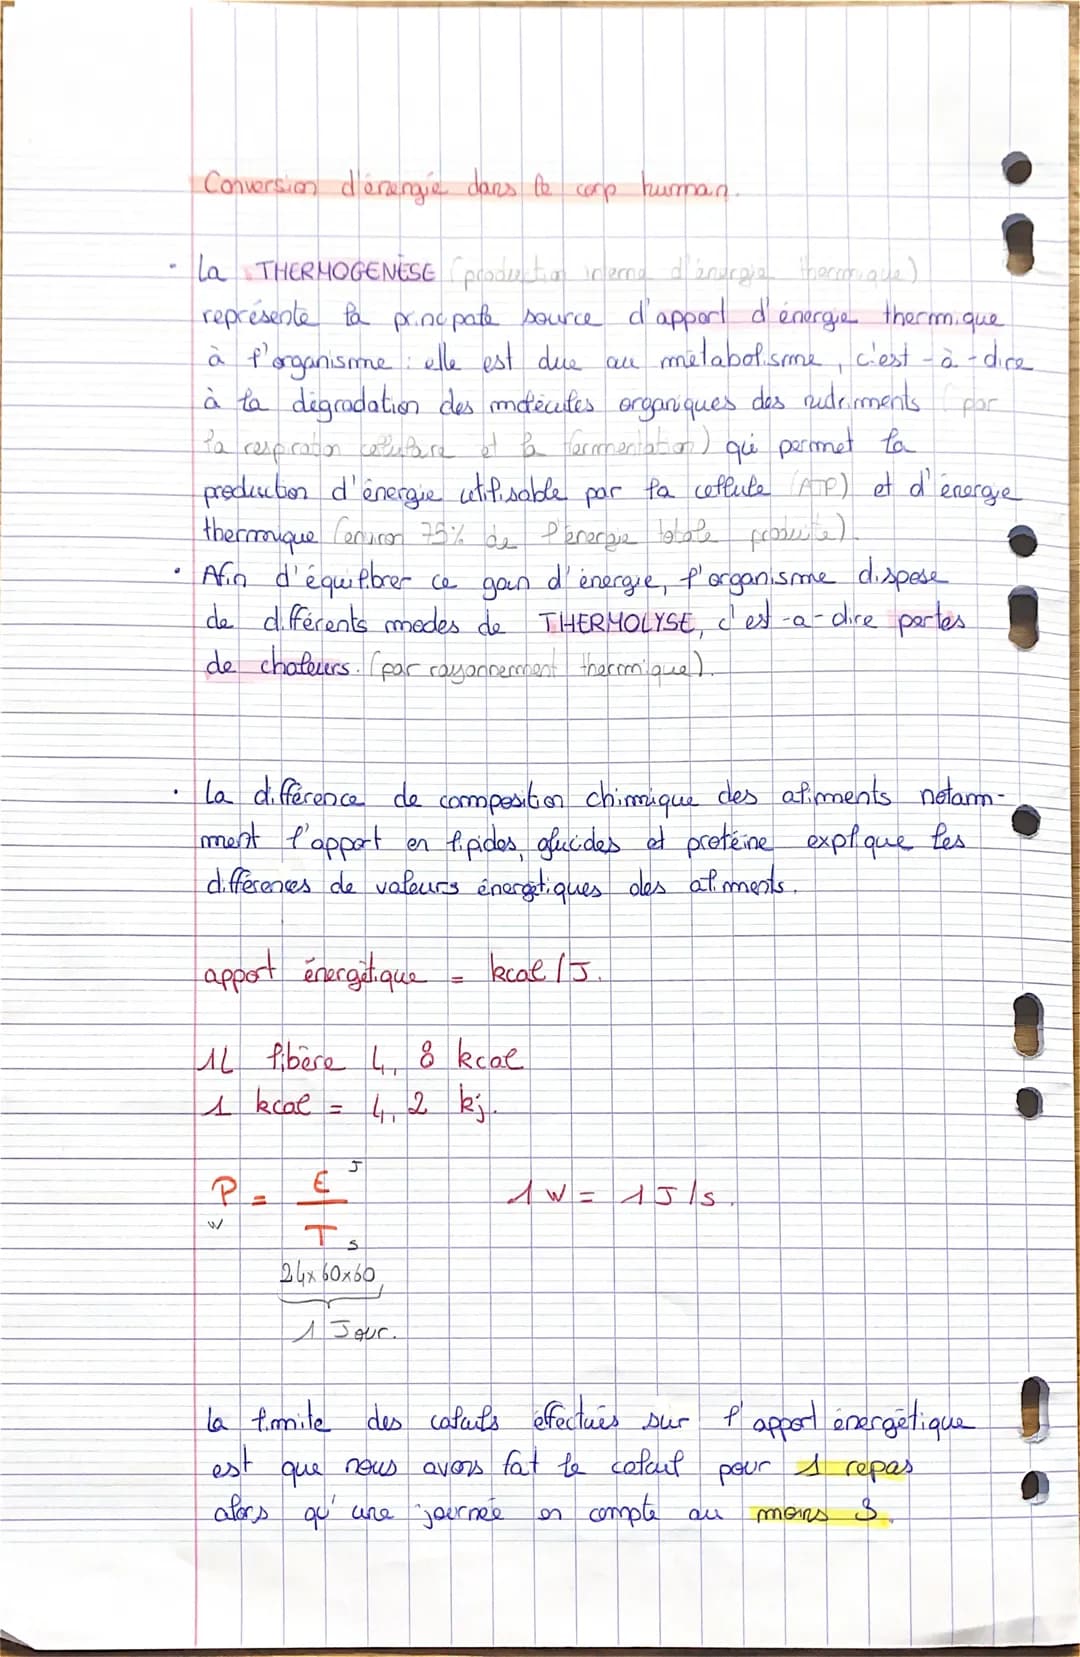 Conversion d'énergie dans le corp human.
• La THERMOGENÈSE (production interne d'énergie thermique)
représente la principale source d'apport d'énergie thermique
à l'organisme : elle est due au métabolisme, c'est-à-dire
à la dégradation des molécules organiques des nutriments (par
la respiration cellulaire et la fermentation) qui permet la
production d'énergie utilisable par la cellule (ATP) et d'énergie
thermique (environ 75% de l'énergie totale produite).
• Afin d'équilibrer ce gain d'énergie, l'organisme dispose
de différents modes de THERMOLYSE, c'est-a-dire pertes
de chaleurs. (par rayonnement thermique).
• La différence de composition chimique des aliments notam-
ment l'apport en lipides, glucides et protéine explique les
différences de valeurs énergétiques des aliments.
apport énergétique = kcal/J.
1L libère 4,8 kcal
1 kcal = 4,2 kj.
P = E J
W
T s
1W = 1J/s.
24x60x60
1 Jour.
La limite des calculs effectués sur l'apport énergétique
est que nous avons fait le calcul pour 1 repas
alors qu'une journée en compte au moins 3.